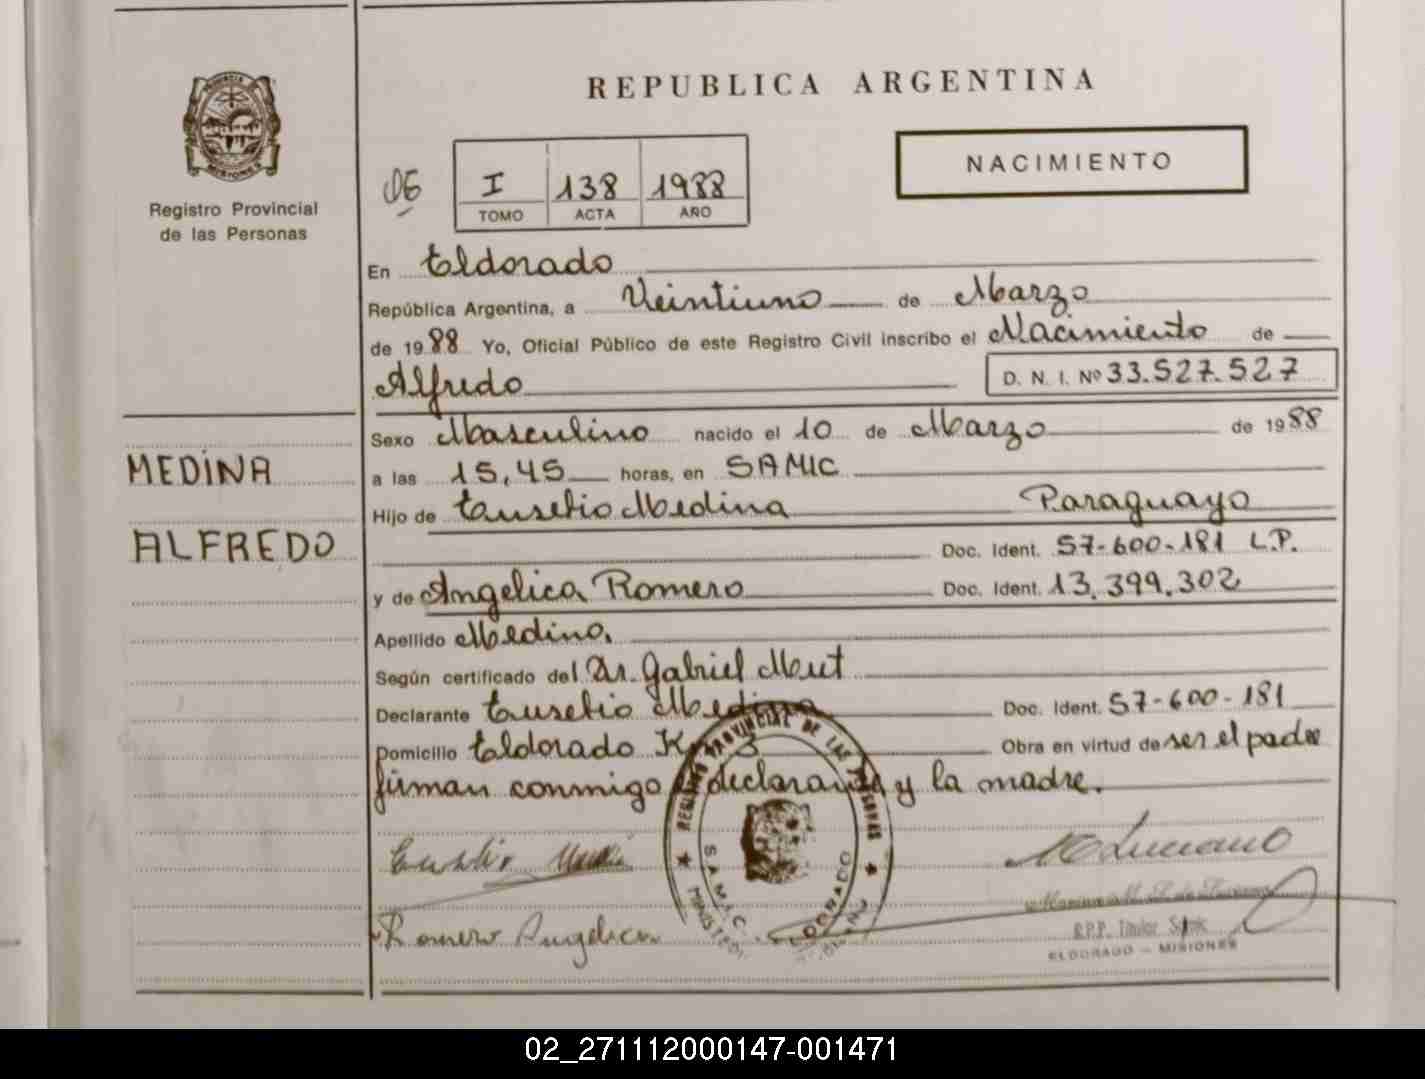 REPUBLICA ARGENTINA
PROVINCIA
MISIONES
Registro Provincial
de las Personas
NACIMIENTO
I 138 1988
TOMO ACTA AÑO
En Eldorado
República Argentina, a Veintiuno de Marzo
de 1988 Yo, Oficial Público de este Registro Civil inscribo el Nacimiento de
Alfredo D. N. I. Nº 33.527.527
Sexo Masculino nacido el 10 de Marzo de 1988
MEDINA
a las 15,45 horas, en SAMIC
Hijo de Eusebio Medina Paraguayo
ALFREDO
Doc. Ident. 57-600-181 L.P.
y de Angelica Romero Doc. Ident. 13.399.302
Apellido Medina.
Según certificado del Dr. Gabriel Mut
Declarante Eusebio Medina Doc. Ident. 57-600-181
Domicilio Eldorado Obra en virtud de ser el padre
firman conmigo declarante y la madre.
REGISTRO PROVINCIAL DE LAS PERSONAS
S.A.M.I.C.
ELDORADO
Romero Angelica
M Luciano
R.P.P. Titular
ELDORADO - MISIONES
02_271112000147-001471